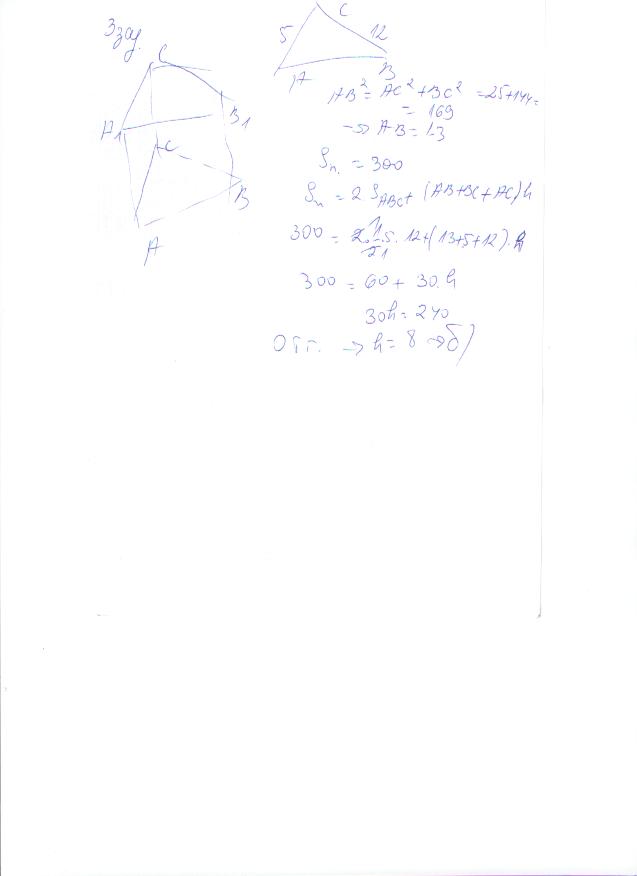 3 зад.
C
A1
B1
C
B
A
C
5
12
A
B
AB² = AC² + BC² = 25+144=
= 169
→ AB = 13
Sп. = 300
Sп = 2 SABC + (AB+BC+AC)h
300 = 2.1/2.5.12+(13+5+12).h
300 = 60 + 30.h
30h = 240
Отг. → h = 8 → б)